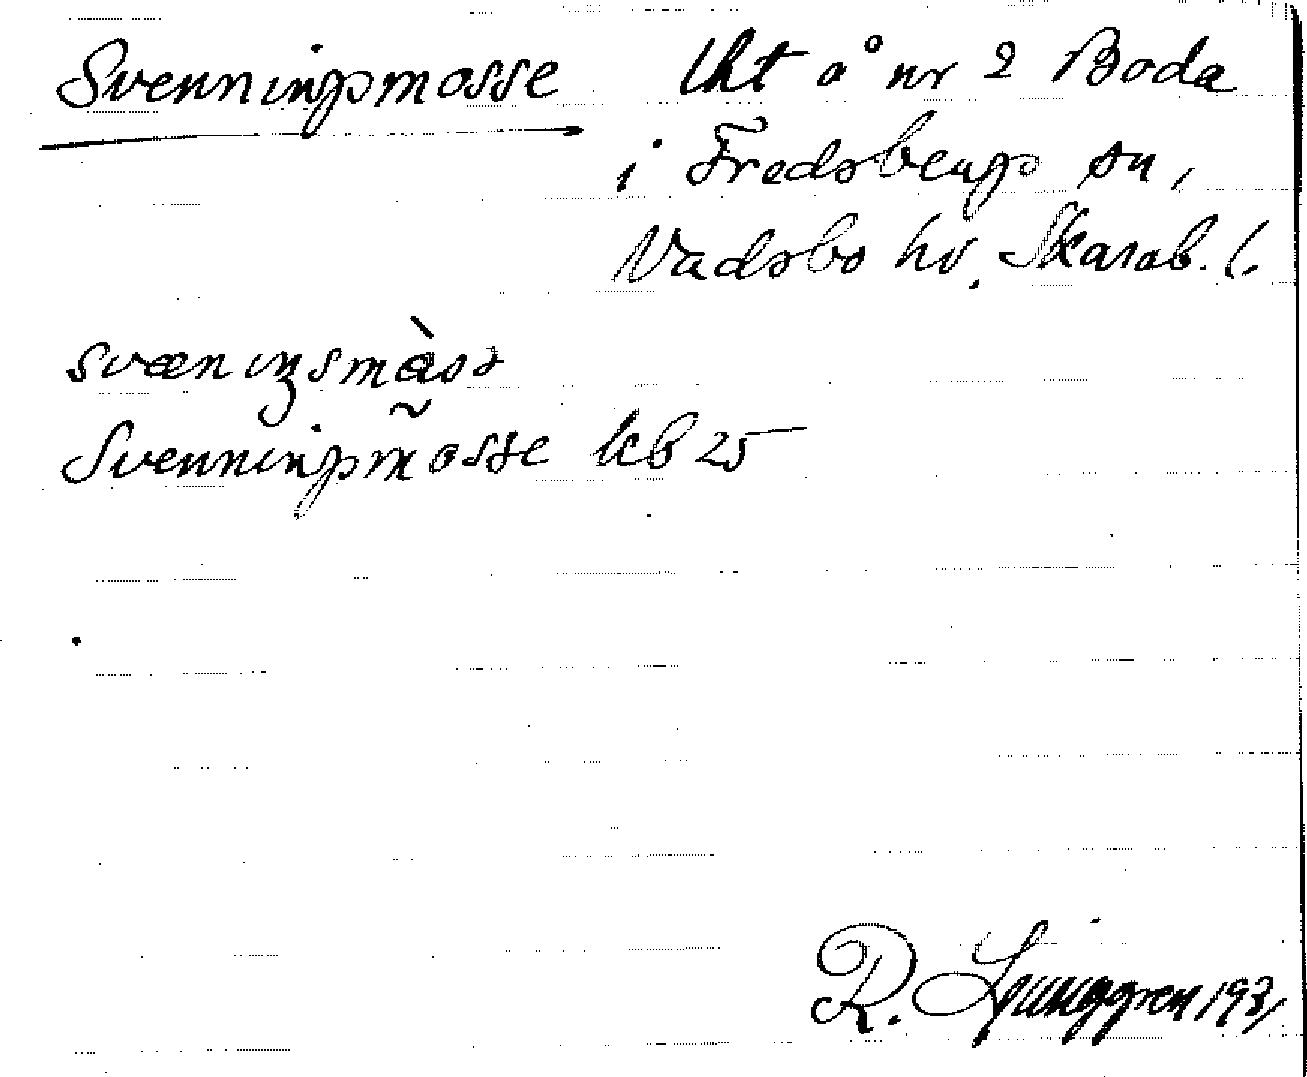 Svenningsmosse lht å nr 2 Boda
i Fredsbergs sn,
Vadsbo hd, Skarab. l.
svæniŋsmåsə
Svenningsmosse kb 25
R. Ljunggren 1931